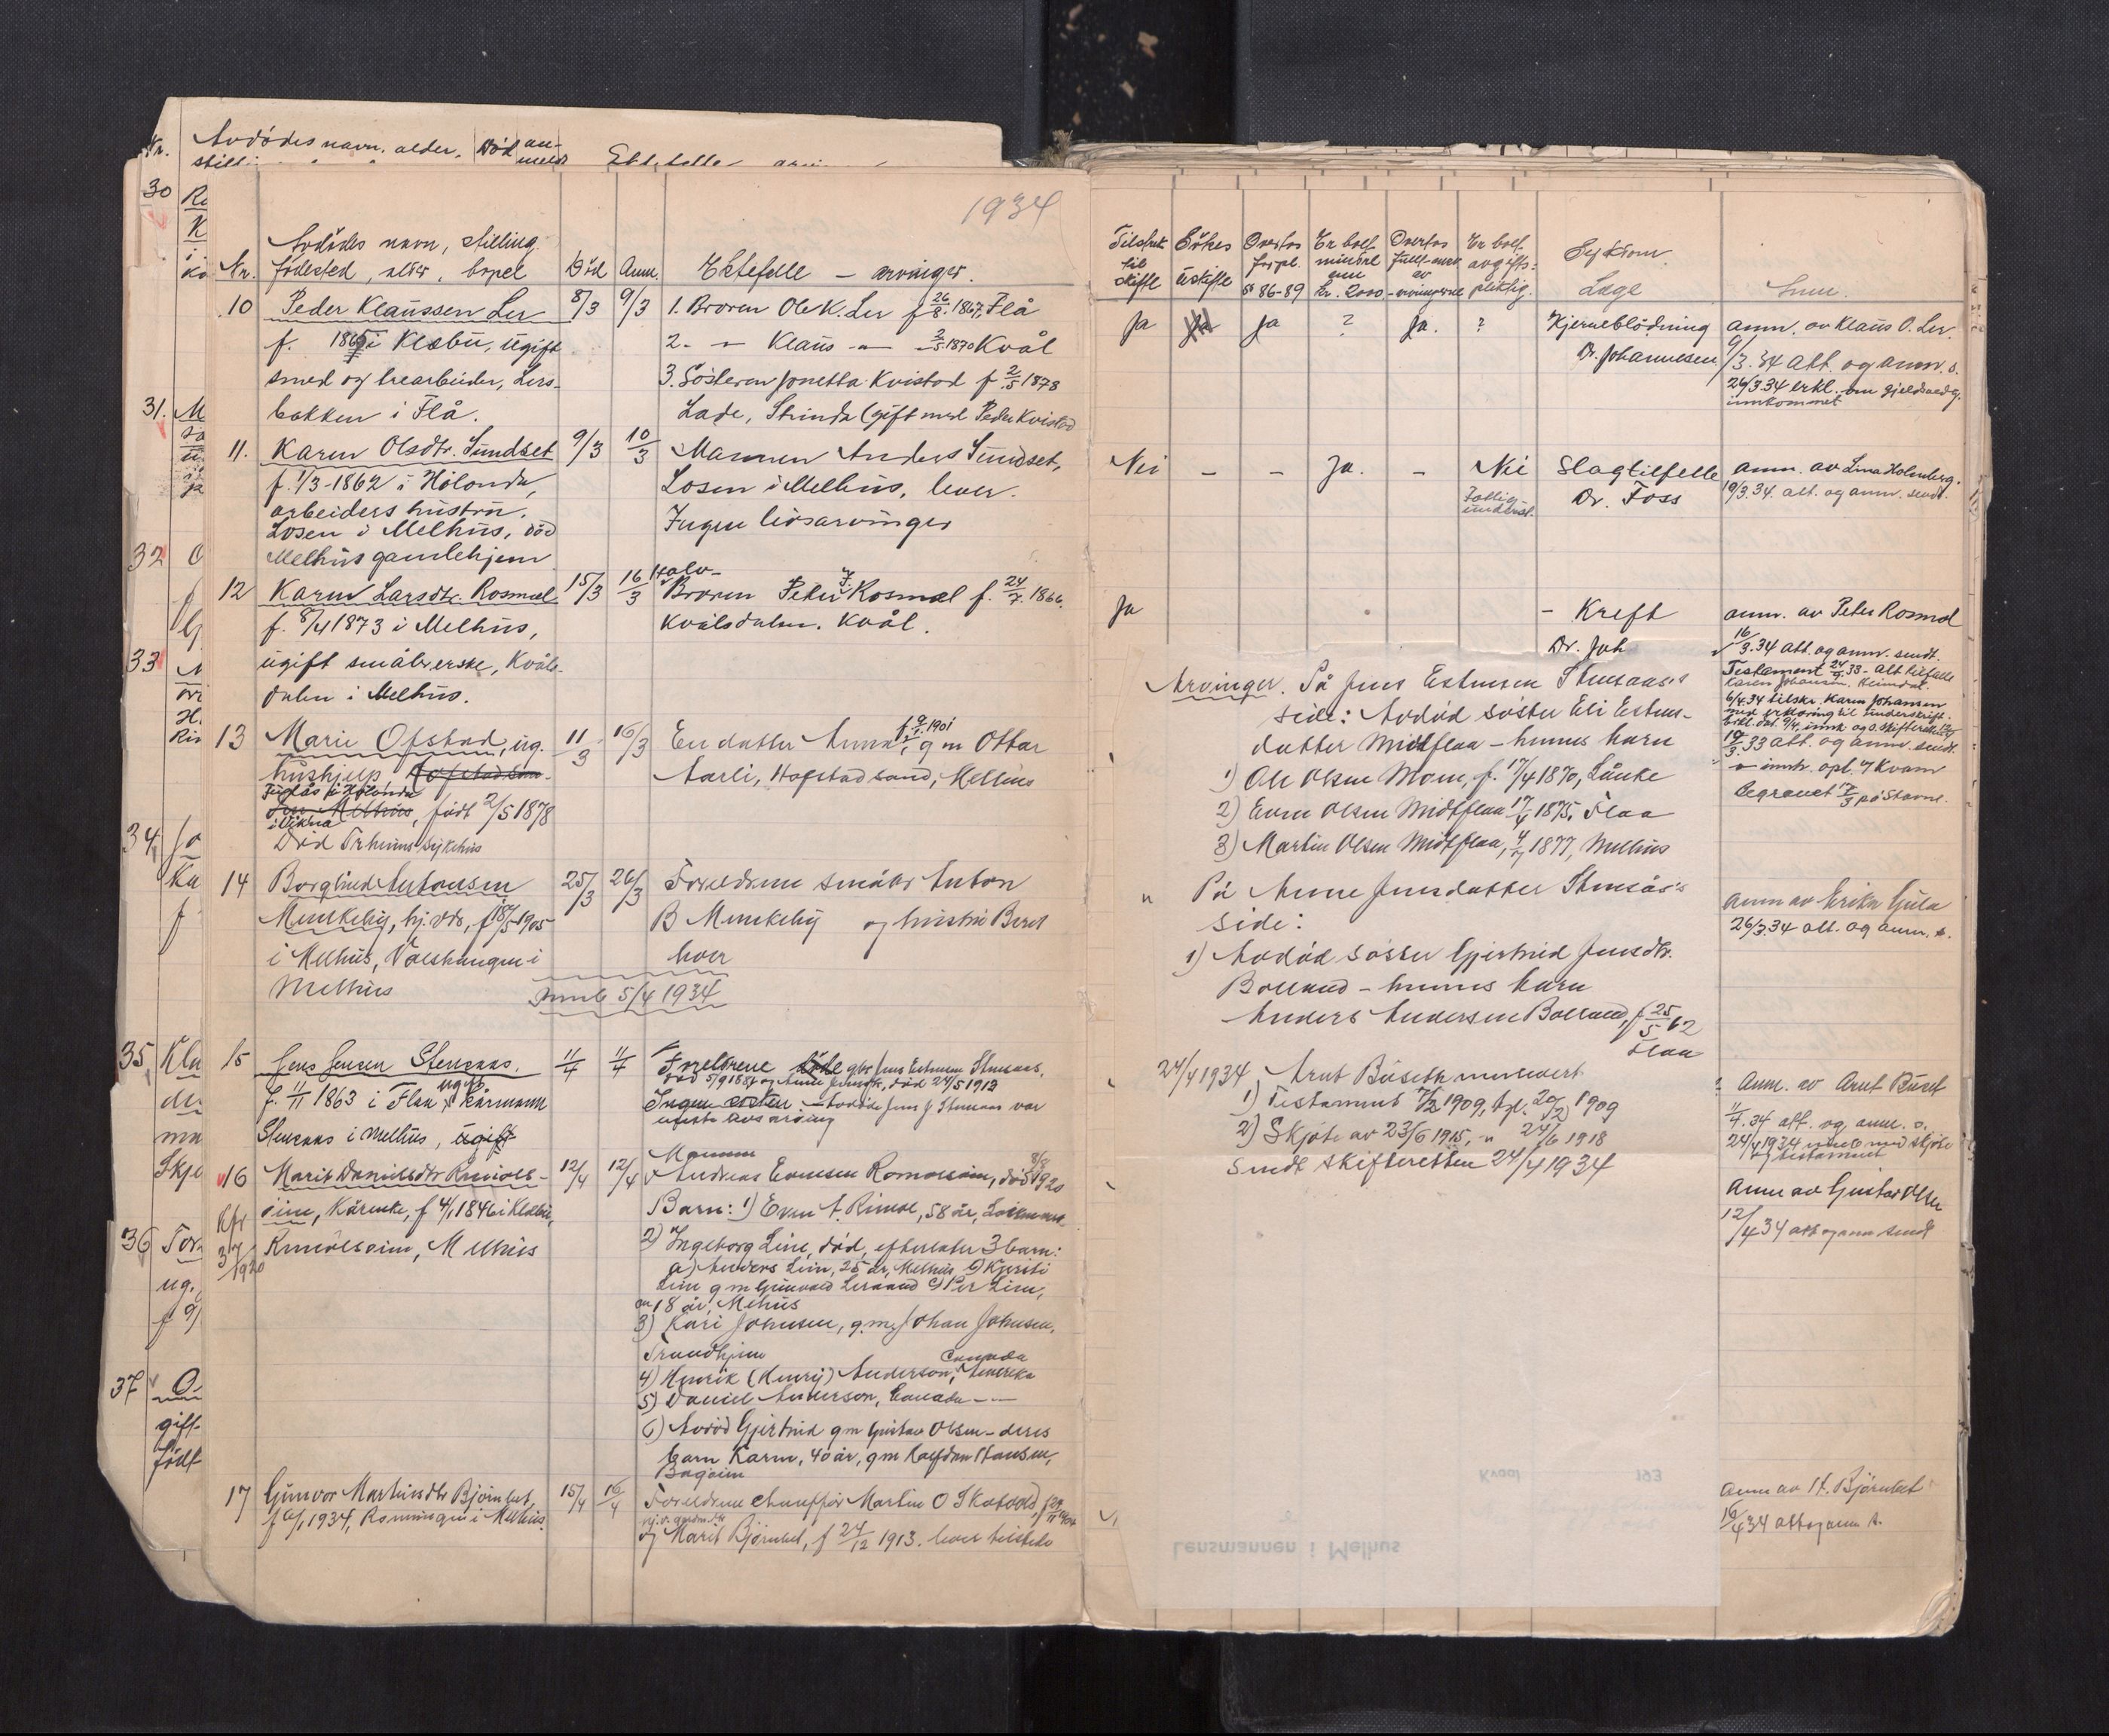 Nr. Avdødes navn, alder, Død an-
meldt
30
31.
32
33
34
35
36
37
1934
Nr. Avdødes navn, stilling, Død Anm. Ektefelle – arvinger.
fødested, alder, bopel
10 Peder Klaussen Ler 8/3 9/3 1. Broren Ole K. Ler f 26/8 1867, Flå
f. 1865 i Klæbu, ugift 2. – " – Klaus – " – 2/5 1870 Kvål
smed og trearbeider, Lers- 3. Søsteren Jonetta Kvistad f 2/5 1878
bakken i Flå. Lade, Strinda (gift med Peder Kvistad
11. Karen Olsdtr. Sundset 9/3 10/3 Mannen Anders Sundset,
f. 1/3-1862 i Hølonda, Losen i Melhus, lever.
arbeiders hustru. Ingen livsarvinger
Losen i Melhus, død
Melhus gamlehjem
12 Karen Larsdtr. Rosmæl 15/3 16/3 Halv-
Broren Peter J. Rosmæl f. 24/7 1866.
f. 8/4 1873 i Melhus, Kvålsdalen. Kvål.
ugift småbr.erske, Kvåls-
dalen i Melhus.
13 Marie Ofstad, ug. 11/3 16/3 En datter Anna, f 9/7 1901, g m Ottar
hushjelp, Hofstadsan- Aarli, Hofstadsand, Melhus
i Hølonda
den Melhus, født 2/5 1878
Død Trheims sykehus
14 Borghild Antonsen 25/3 26/3 Foreldrene småbr Anton
Munkeby, hj.vdr., f 18/5 1905 B Munkeby og hustru Beret
i Melhus, Valslaungen i lever
Melhus
Innb 5/4 1934
15 Jens Jensen Stensaas. 11/4 11/4 Foreldrene døde gbr Jens Estensen Stensaas,
død 5/9 1887 og Anne Jensdtr, død 24/5 1913
f. 11/11 1863 i Flaa, ugift kårmann Ingen søsken – Avdøde Jens J Stensaas var
eneste livsarving
Stensaas i Melhus, ugift
16 Marit Danielsdtr Rimols- 12/4 12/4 Mannen
Andreas Evensen Romolsøien, død 8/8 1920
øien, kårenke, f 4/1 1846 i Klæbu, Barn: 1) Even A. Rimol, 58 år,
Rimolsøien, Melhus 2) Ingeborg Lium, død, efterlater 3 barn:
a) Anders Lium, 25 år, Melhus b) Kjersti
Lium g m Gunvald Leraand c) Per Lium,
18 år, Melhus
3) Kari Johnsen, g.m. Johan Johnsen,
Trondhjem
4) Henrik (Henry) Anderson, Canada Amerika
5) Daniel Anderson, Canada – " –
6) Avdød Gjertrud g m Gustav Olsen – deres
barn Karen, 40 år, g m Halfdan Hansen,
Bagøien
17 Gunvor Martinsdtr Bjørnbet, 15/4 16/4 Foreldrene chauffør Martin O Skotvold,
f 6/1 1934, i Melhus. og Marit Bjørnbet, f 24/12 1913. lever
Tilstrek. Søkes Overtas Er boet Overtas Er boet Sykdom.
til uskifte forpl. mindre gjeld-ansv. avgifts- Læge
skifte § 86-89 enn kr. 2000 av -arvingerne pliktig.
Ja Ja Ja ? Ja. ? Hjerneblødning anm. av Klaus O. Ler.
Dr. Johannesen 9/3.34 att. og anm. s.
26/3.34 erkl. om gjeldsvedg.
innkommet
Nei – – Ja. – Nei Slagtilfelle anm. av Lina Holmberg.
Fattig-
underst. Dr. Foss 10/3.34. att. og anm. sendt.
Ja – Kreft anm. av Peter Rosmæl
Dr. Joh 16/3.34 att. og anm. sendt.
Testament 24/9 33 – att. tilfalle
Karen Johansen, Heimdal.
6/4.34 tilskr. Karen Johansen
med erklæring til underskrift.
19/3.33 att. og anm. sendt.
innh. opl. Kvam
Begravet 17/3 på Stavne.
Arvinger. På Jens Estensen Stensaas's
side: Avdød søster Eli Estens-
datter Midtflaa – hennes barn
1) Ole Olsen Moen, f. 17/4 1870, Lånke
2) Even Olsen Midtflaa 17/4 1875, Flaa
3) Martin Olsen Midtflaa, 4/7 1877, Melhus
På Anne Jensdatter Stensås's
side:
1) Avdød søster Gjertrud Jensdtr.
Bolland – hennes barn
Anders Andersen Bolland, f 25/5 62
Flaa
anm av Erika Gula
26/3.34 att. og anm. s.
24/4 1934 Arnt Buseth
1) Testament 7/2 1909, tgl. 20/2 1909
2) Skjøte av 23/6 1915, " 24/6 1918
Sendt skifteretten 24/4 1934
Anm. av Arnt Buset
11/4.34 att. og anm. s.
24/4 1934 med skjøte
og testament
Anm av Gustav Olsen
12/4 34 att og anm sendt
anm av H. Bjørnbet
16/4 34 att og anm s.
Kvaal 193
Lensmannen i Melhus